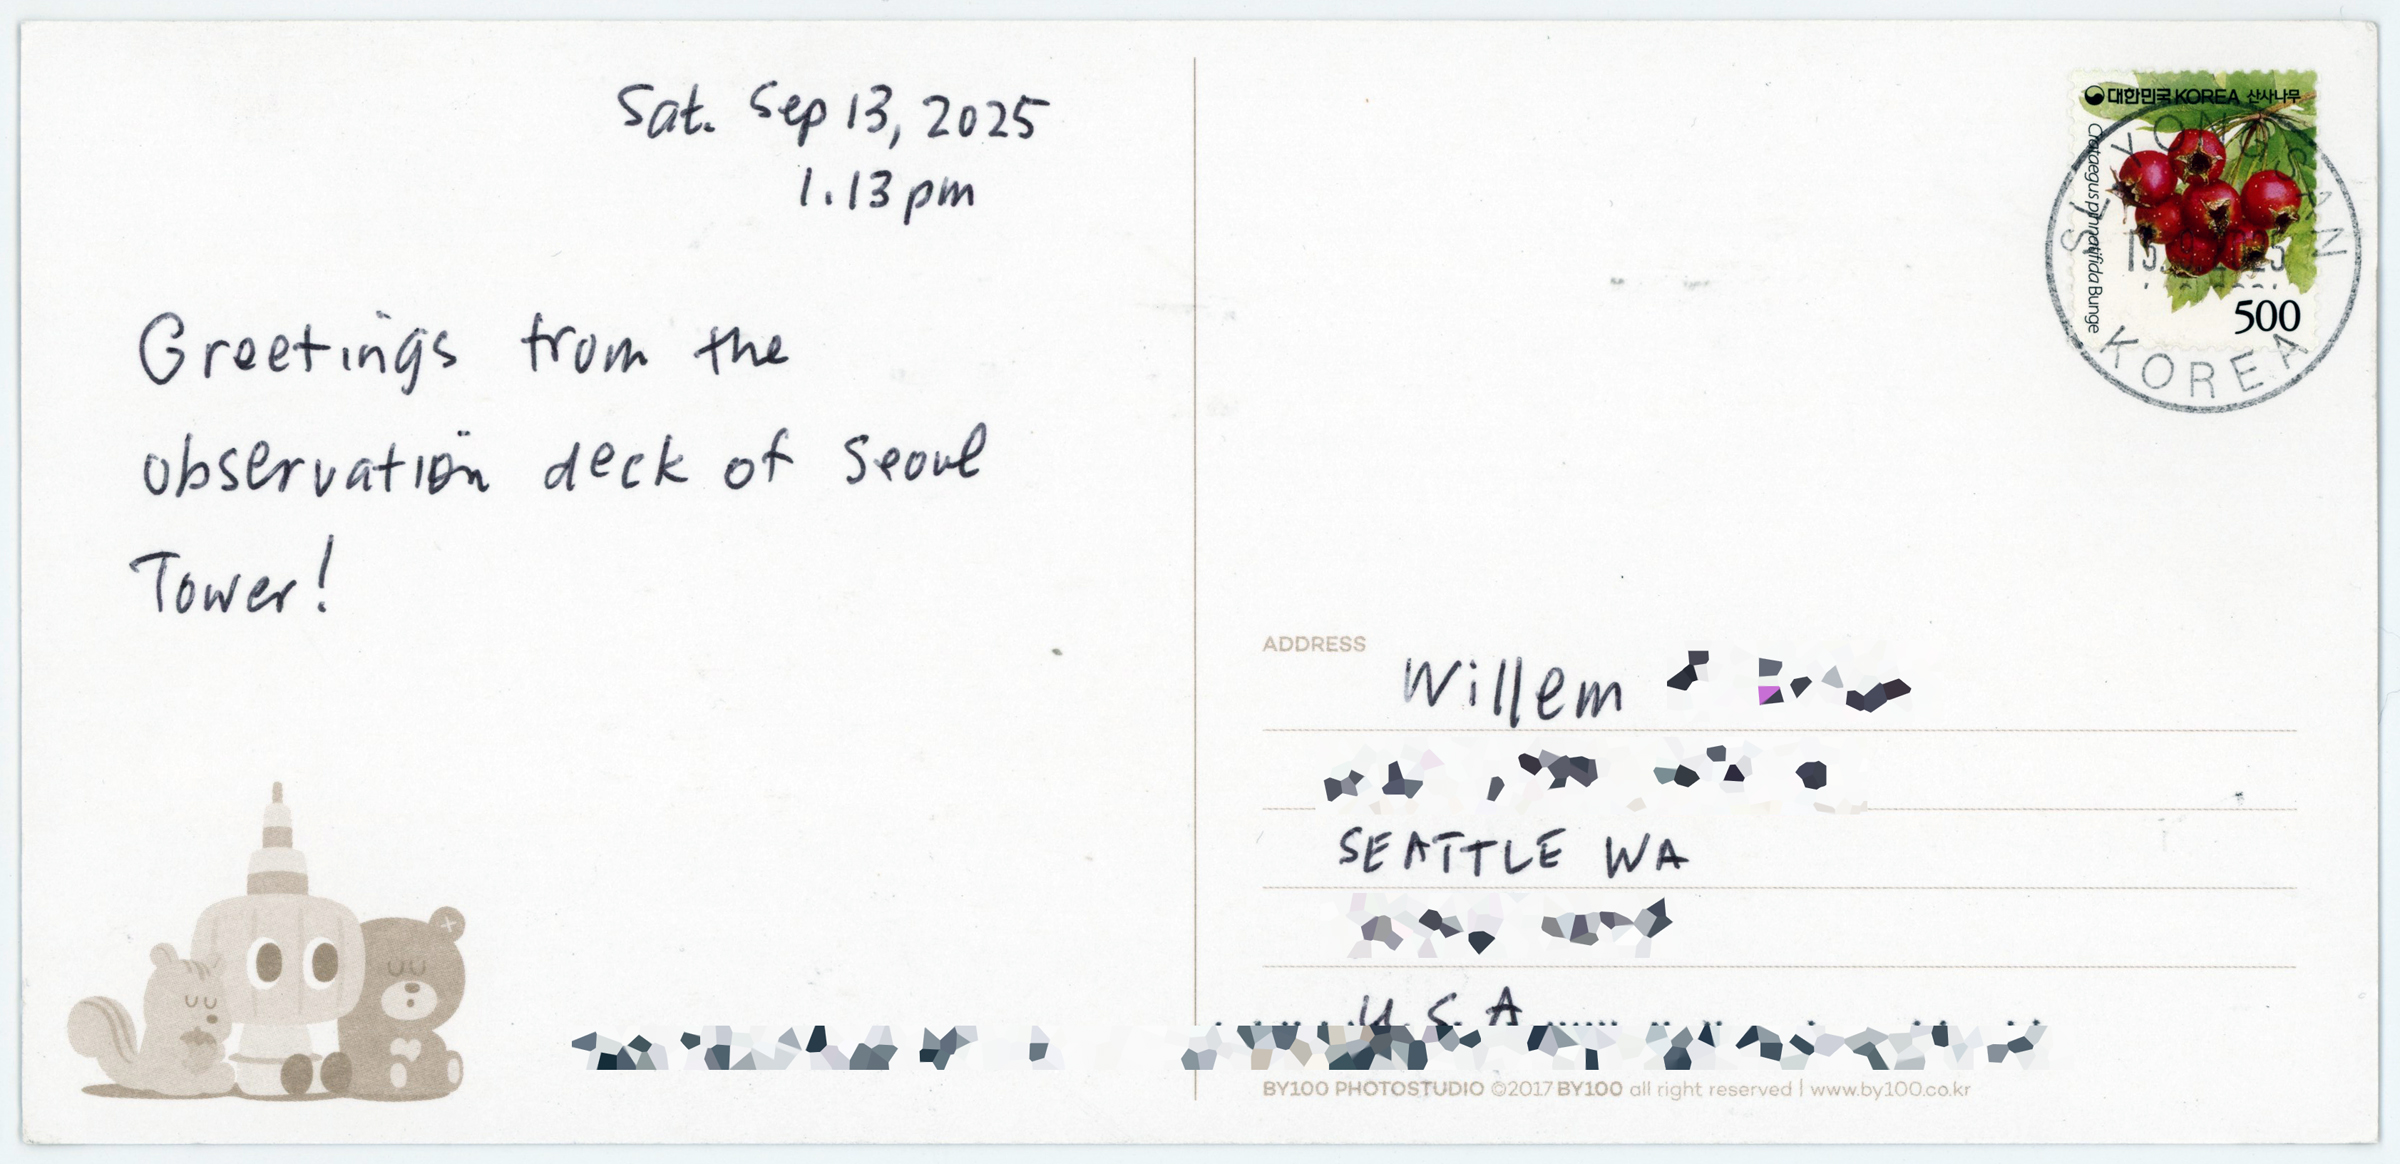 Sat. Sep 13, 2025
1.13pm
Greetings from the
observation deck of Seoul
Tower!
대한민국 KOREA 산사나무
Crataegus pinnatifida Bunge
500
YONGSAN
KOREA
ADDRESS
Willem
SEATTLE WA
U.S.A
BY100 PHOTOSTUDIO ©2017 BY100 all right reserved | www.by100.co.kr